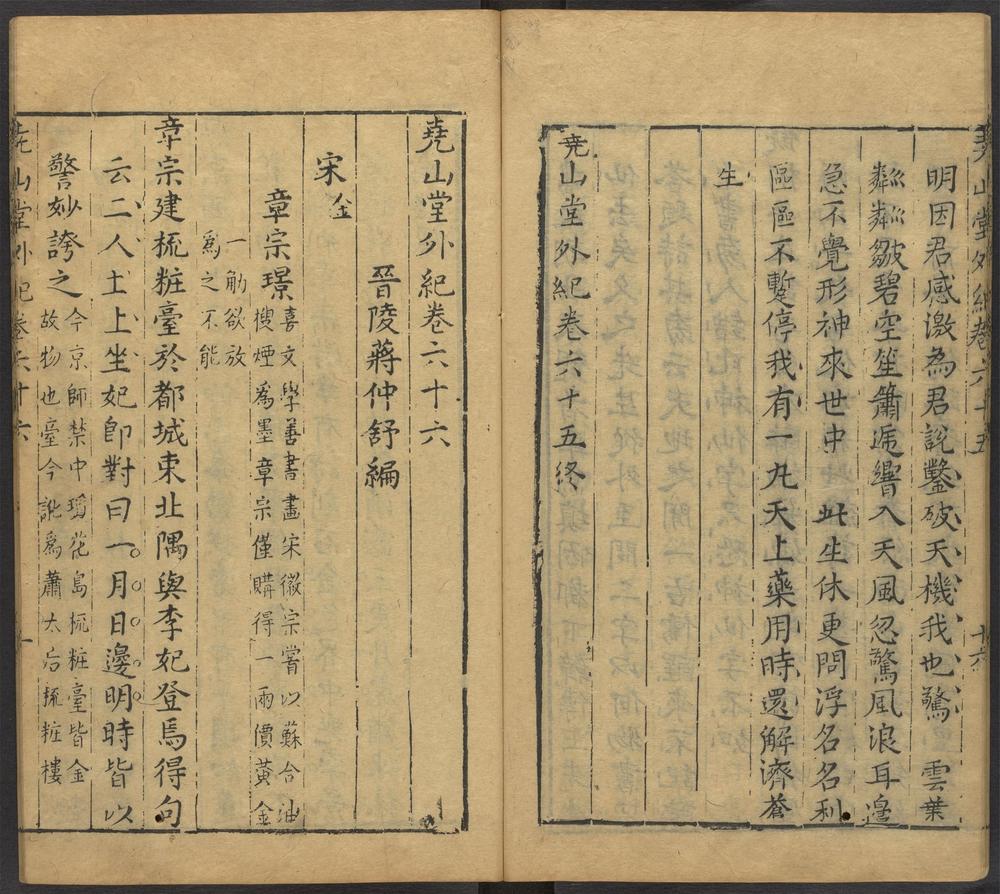 堯山堂外紀卷六十五 十六
明因君感激為君說鑿破天機我也驚 雲葉
粼粼皺碧空笙簫遞響入天風忽驚風浪耳邊
急不覺形神來世中 此生休更問浮名名利
區區不蹔停我有一丸天上藥用時還解濟蒼
生
堯山堂外紀卷六十五終
堯山堂外紀卷六十六
晉陵蔣仲舒編
宋金
章宗璟喜文學善書畫宋徽宗嘗以蘇合油
搜煙爲墨章宗僅購得一兩價黃金
一觔欲放
爲之不能
章宗建梳粧臺於都城東北隅與李妃登焉得句
云二人土上坐妃卽對曰一月日邊明時皆以
警妙誇之今京師禁中瓊花島梳粧臺皆金
故物也臺今訛爲蕭太后梳粧樓
堯山堂外紀卷六十六 一